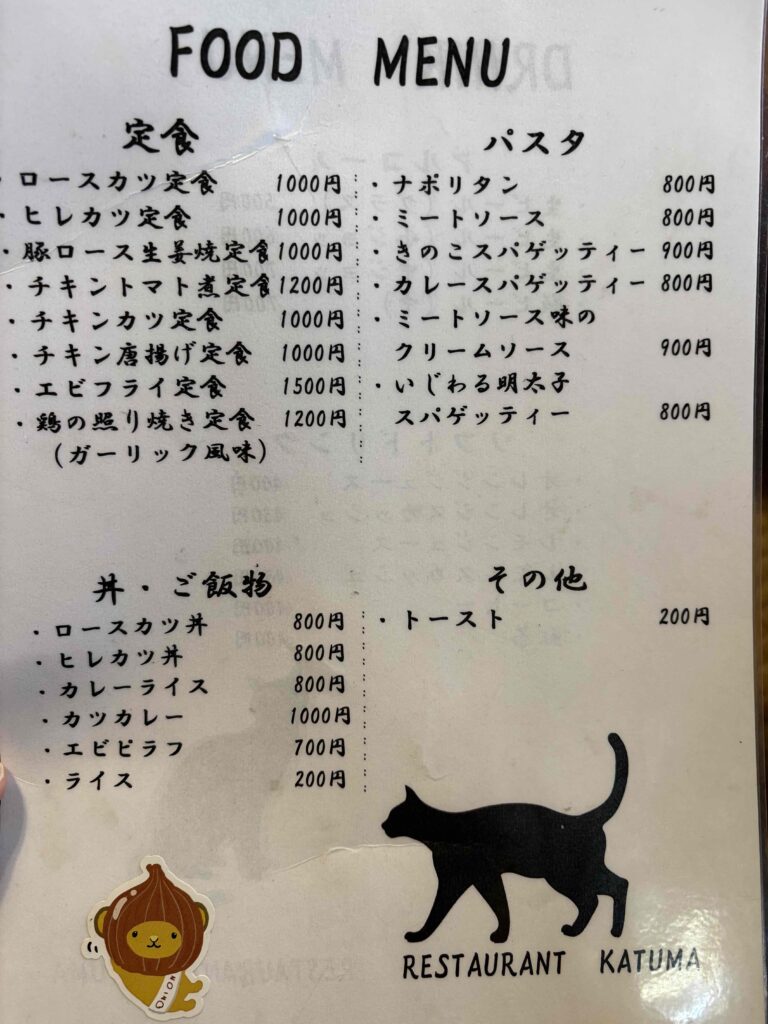 FOOD MENU
定食
・ロースカツ定食 1000円
・ヒレカツ定食 1000円
・豚ロース生姜焼定食 1000円
・チキントマト煮定食 1200円
・チキンカツ定食 1000円
・チキン唐揚げ定食 1000円
・エビフライ定食 1500円
・鶏の照り焼き定食 1200円
(ガーリック風味)
パスタ
・ナポリタン 800円
・ミートソース 800円
・きのこスパゲッティー 900円
・カレースパゲッティー 800円
・ミートソース味の
クリームソース 900円
・いじわる明太子
スパゲッティー 800円
丼・ご飯物
・ロースカツ丼 800円
・ヒレカツ丼 800円
・カレーライス 800円
・カツカレー 1000円
・エビピラフ 700円
・ライス 200円
その他
・トースト 200円
ONION
RESTAURANT KATUMA